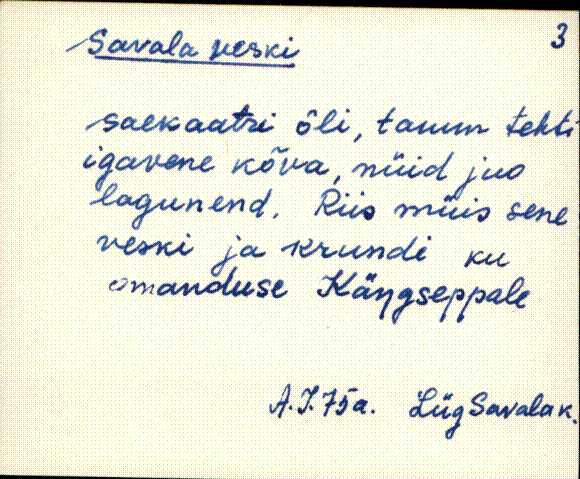 Savala veski
3
saekaatri õli, tamm tehti
igavene kõva, nüid juo
lagunend. Riis müis sene
veski ja krundi ku
omanduse Käŋgseppale
A.J. 75a. Lüg Savala k.